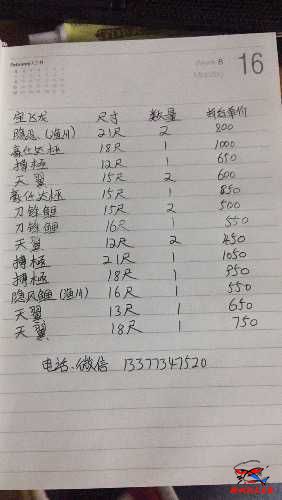 Week 8
Monday
16
宝飞龙 尺寸 数量 每台单价
隐忍(渔川) 21尺 2 800
嵩仕达極 18尺 1 1000
搏極 12尺 1 650
天翼 15尺 2 600
嵩仕达極 15尺 1 850
刀锋鲤 15尺 2 500
刀锋鲤 16尺 1 550
天翼 12尺 2 450
搏極 21尺 1 1050
搏極 18尺 1 950
隐风鲤(渔川) 16尺 1 550
天翼 13尺 1 650
天翼 18尺 1 750
电话.微信 13377347520